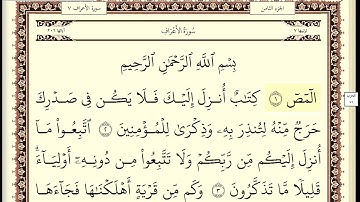 سورة الأعراف ٧
الجزء الثامن
سُورَةُ الأَعْرَافِ
بِسْمِ ٱللَّهِ ٱلرَّحْمَٰنِ ٱلرَّحِيمِ
الٓمٓصٓ ١ كِتَٰبٌ أُنزِلَ إِلَيْكَ فَلَا يَكُن فِى صَدْرِكَ
حَرَجٌ مِّنْهُ لِتُنذِرَ بِهِۦ وَذِكْرَىٰ لِلْمُؤْمِنِينَ ٢ ٱتَّبِعُوا۟ مَآ
أُنزِلَ إِلَيْكُم مِّن رَّبِّكُمْ وَلَا تَتَّبِعُوا۟ مِن دُونِهِۦٓ أَوْلِيَآءَ ۗ
قَلِيلًا مَّا تَذَكَّرُونَ ٣ وَكَم مِّن قَرْيَةٍ أَهْلَكْنَٰهَا فَجَآءَهَا